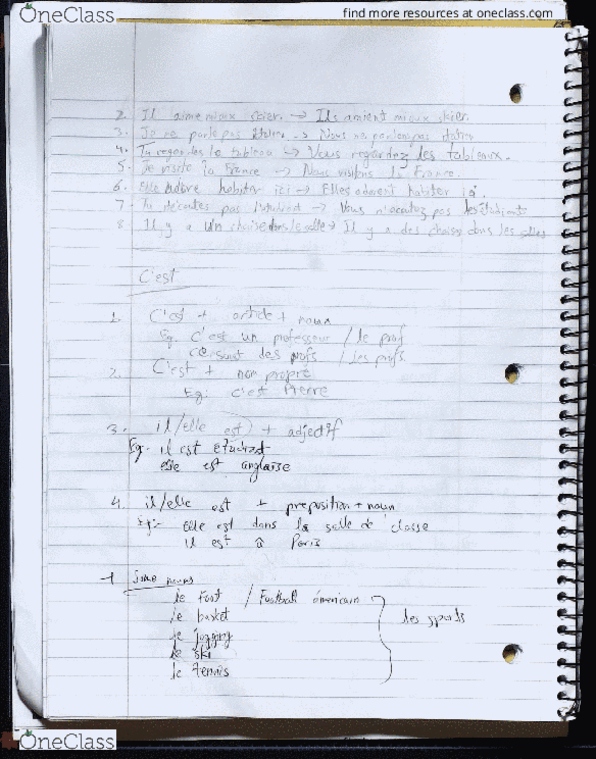 OneClass
find more resources at oneclass.com
2. Il aime mieux skier. → Ils aiment mieux skier.
3. Je ne parle pas → Nous ne parlons pas
4. Tu regardes le tableau → Vous regardez les tableaux.
5. Je visite la France → Nous visitons la France.
6. Elle adore habiter ici → Elles adorent habiter ici.
7. Tu pas l'étudiant → Vous n'écoutez pas les étudiants
8 Il y a un chaise dans le salle → Il y a des chaises dans les salles
C'est
1. C'est + article + noun
Eg. C'est un professeur / le prof
ce sont des profs / les profs
2. C'est + nom propre
Eg: C'est Pierre
3. il/elle est + adjectif
Eg. il est
elle est anglaise
4. il/elle est + preposition + noun
Eg:- elle est dans la salle de classe
il est à Paris
Some nouns
le Foot / Football américain
le basket
le jogging
le ski
le tennis
les sports
OneClass